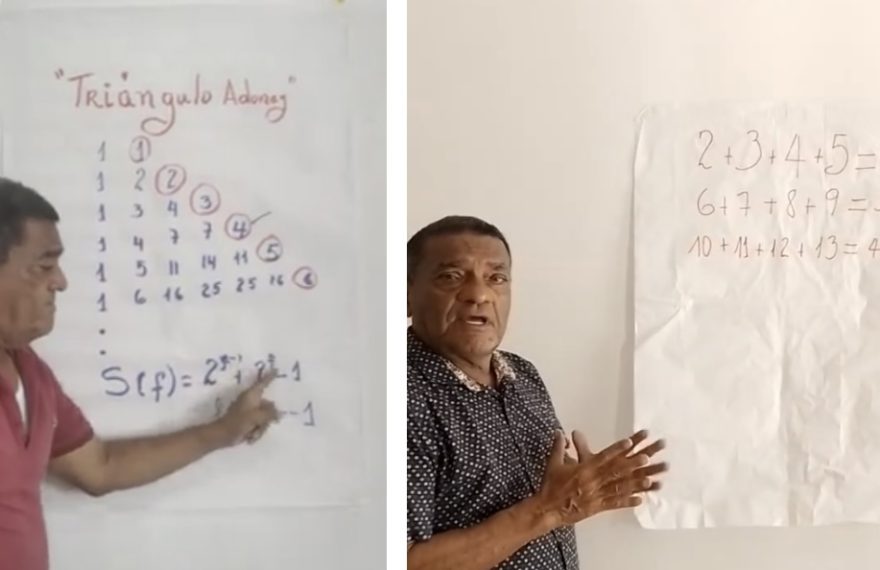 "Triángulo Adonay"
1 1
1 2 2
1 3 4 3
1 4 7 7 4
1 5 11 14 11 5
1 6 16 25 25 16 6
S(f) = 2 + 2 - 1
- 1
2 + 3 + 4 + 5 =
6 + 7 + 8 + 9 =
10 + 11 + 12 + 13 = 4